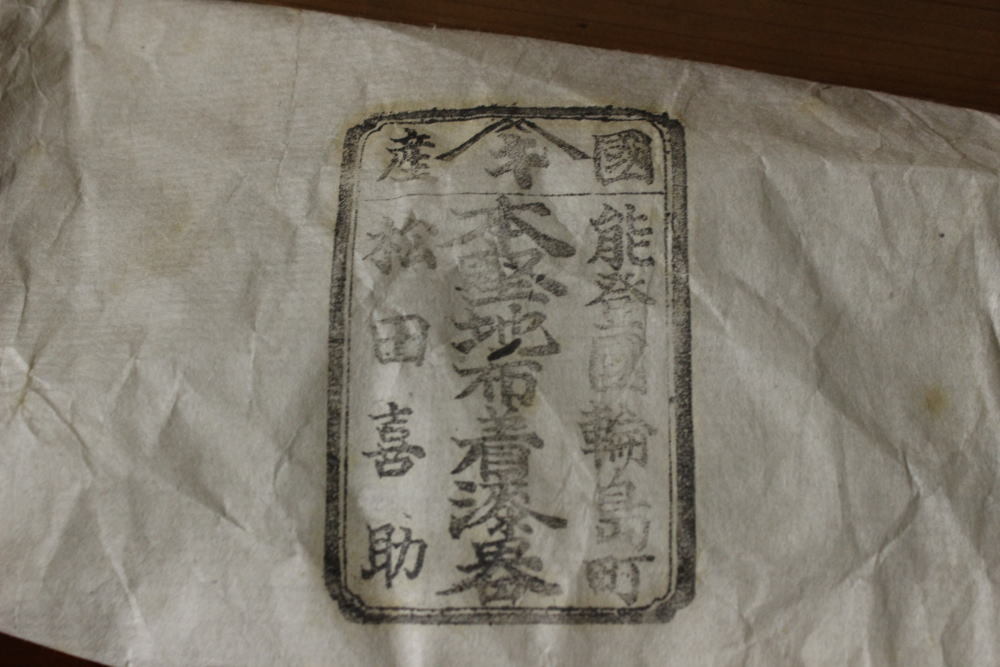 國キ産
能登國輪島町
本堅地布着漆器
松田喜助